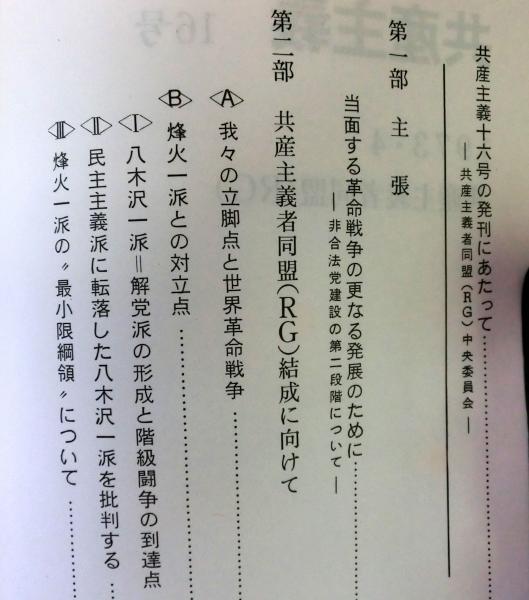 共産主義十六号の発刊にあたって
―共産主義者同盟(RG)中央委員会―
第一部 主張
当面する革命戦争の更なる発展のために
―非合法党建設の第二段階について―
第二部 共産主義者同盟(RG)結成に向けて
〈A〉 我々の立脚点と世界革命戦争
〈B〉 烽火一派との対立点
〈Ⅰ〉 八木沢一派＝解党派の形成と階級闘争の到達点
〈Ⅱ〉 民主主義派に転落した八木沢一派を批判する
〈Ⅲ〉 烽火一派の〝最小限綱領〟について